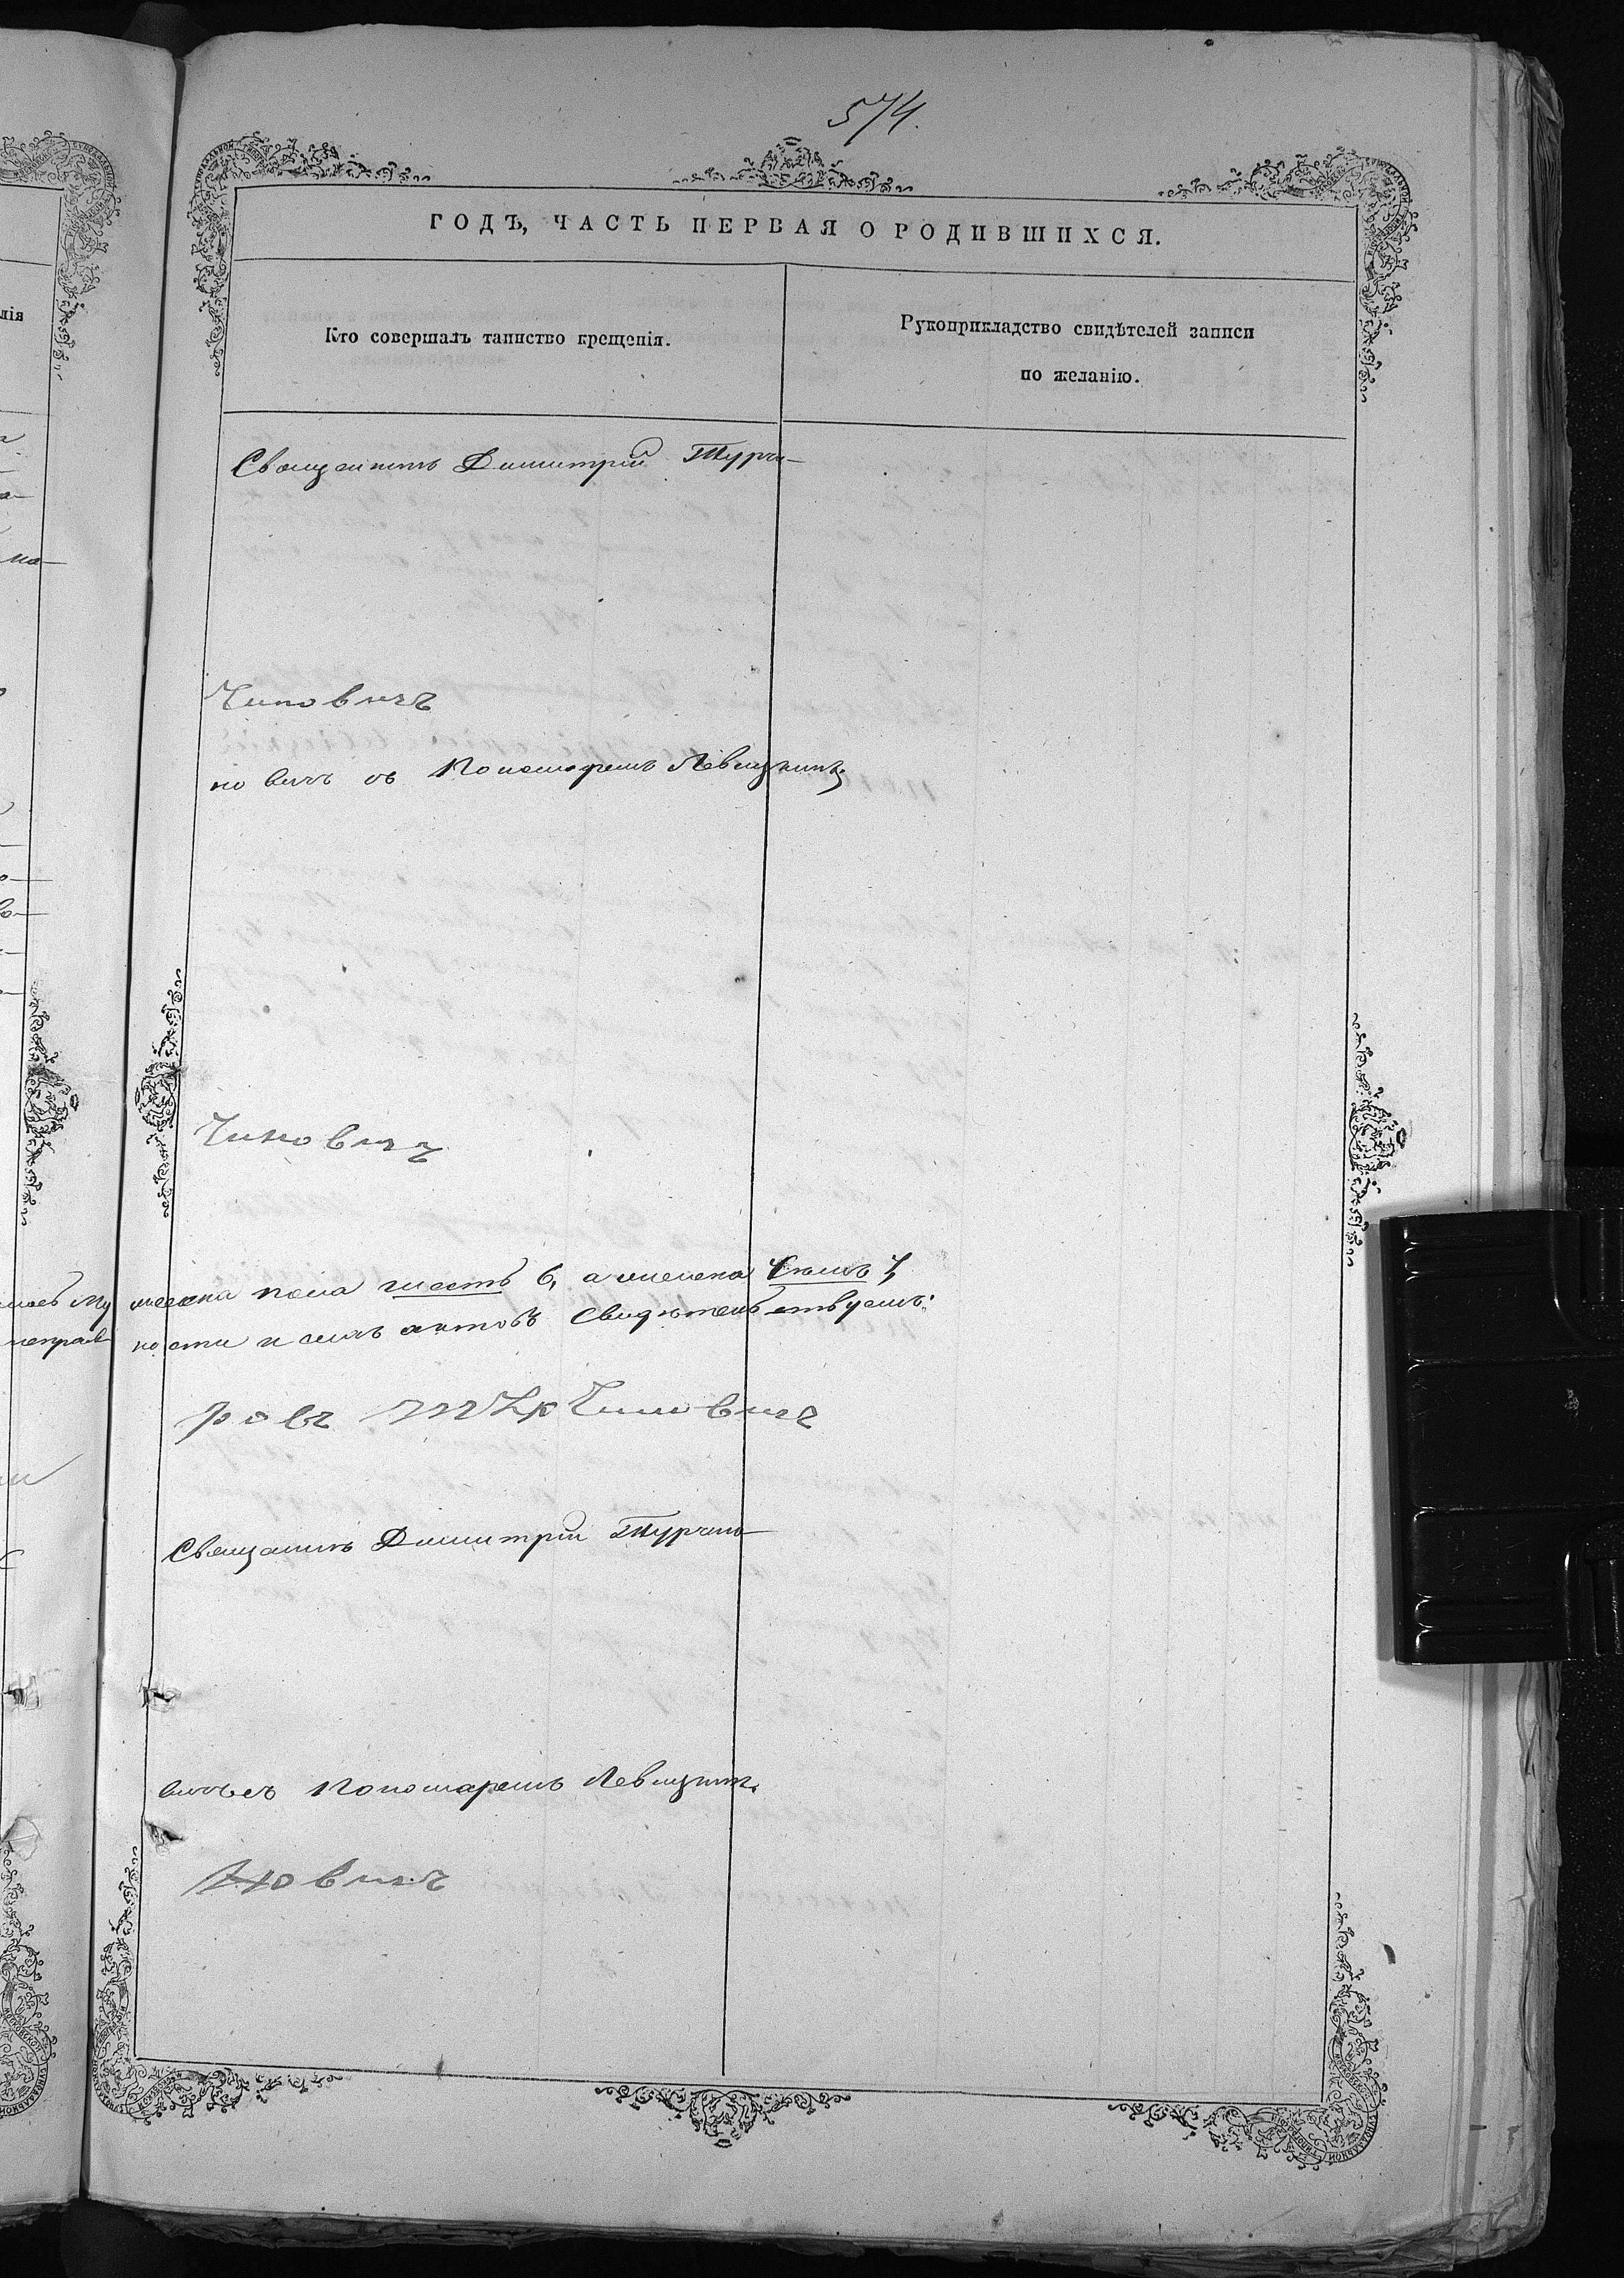 574.
ГОДЪ, ЧАСТЬ ПЕРВАЯ О РОДИВШИХСЯ.
Кто совершалъ таинство крещенія.
Рукоприкладство свидѣтелей записи
по желанію.
Священникъ Димитрій Турчи-
Чиновичъ
новичъ съ Пономаремъ Левицкимъ.
Чиновичъ
пола шесть 6, а женска семь 7,
ности и сихъ актовъ свидѣтельствуемъ:
Чиновичъ
Священникъ Димитрій Турчино-
вичъ съ Пономаремъ Левицкимъ.
новичъ